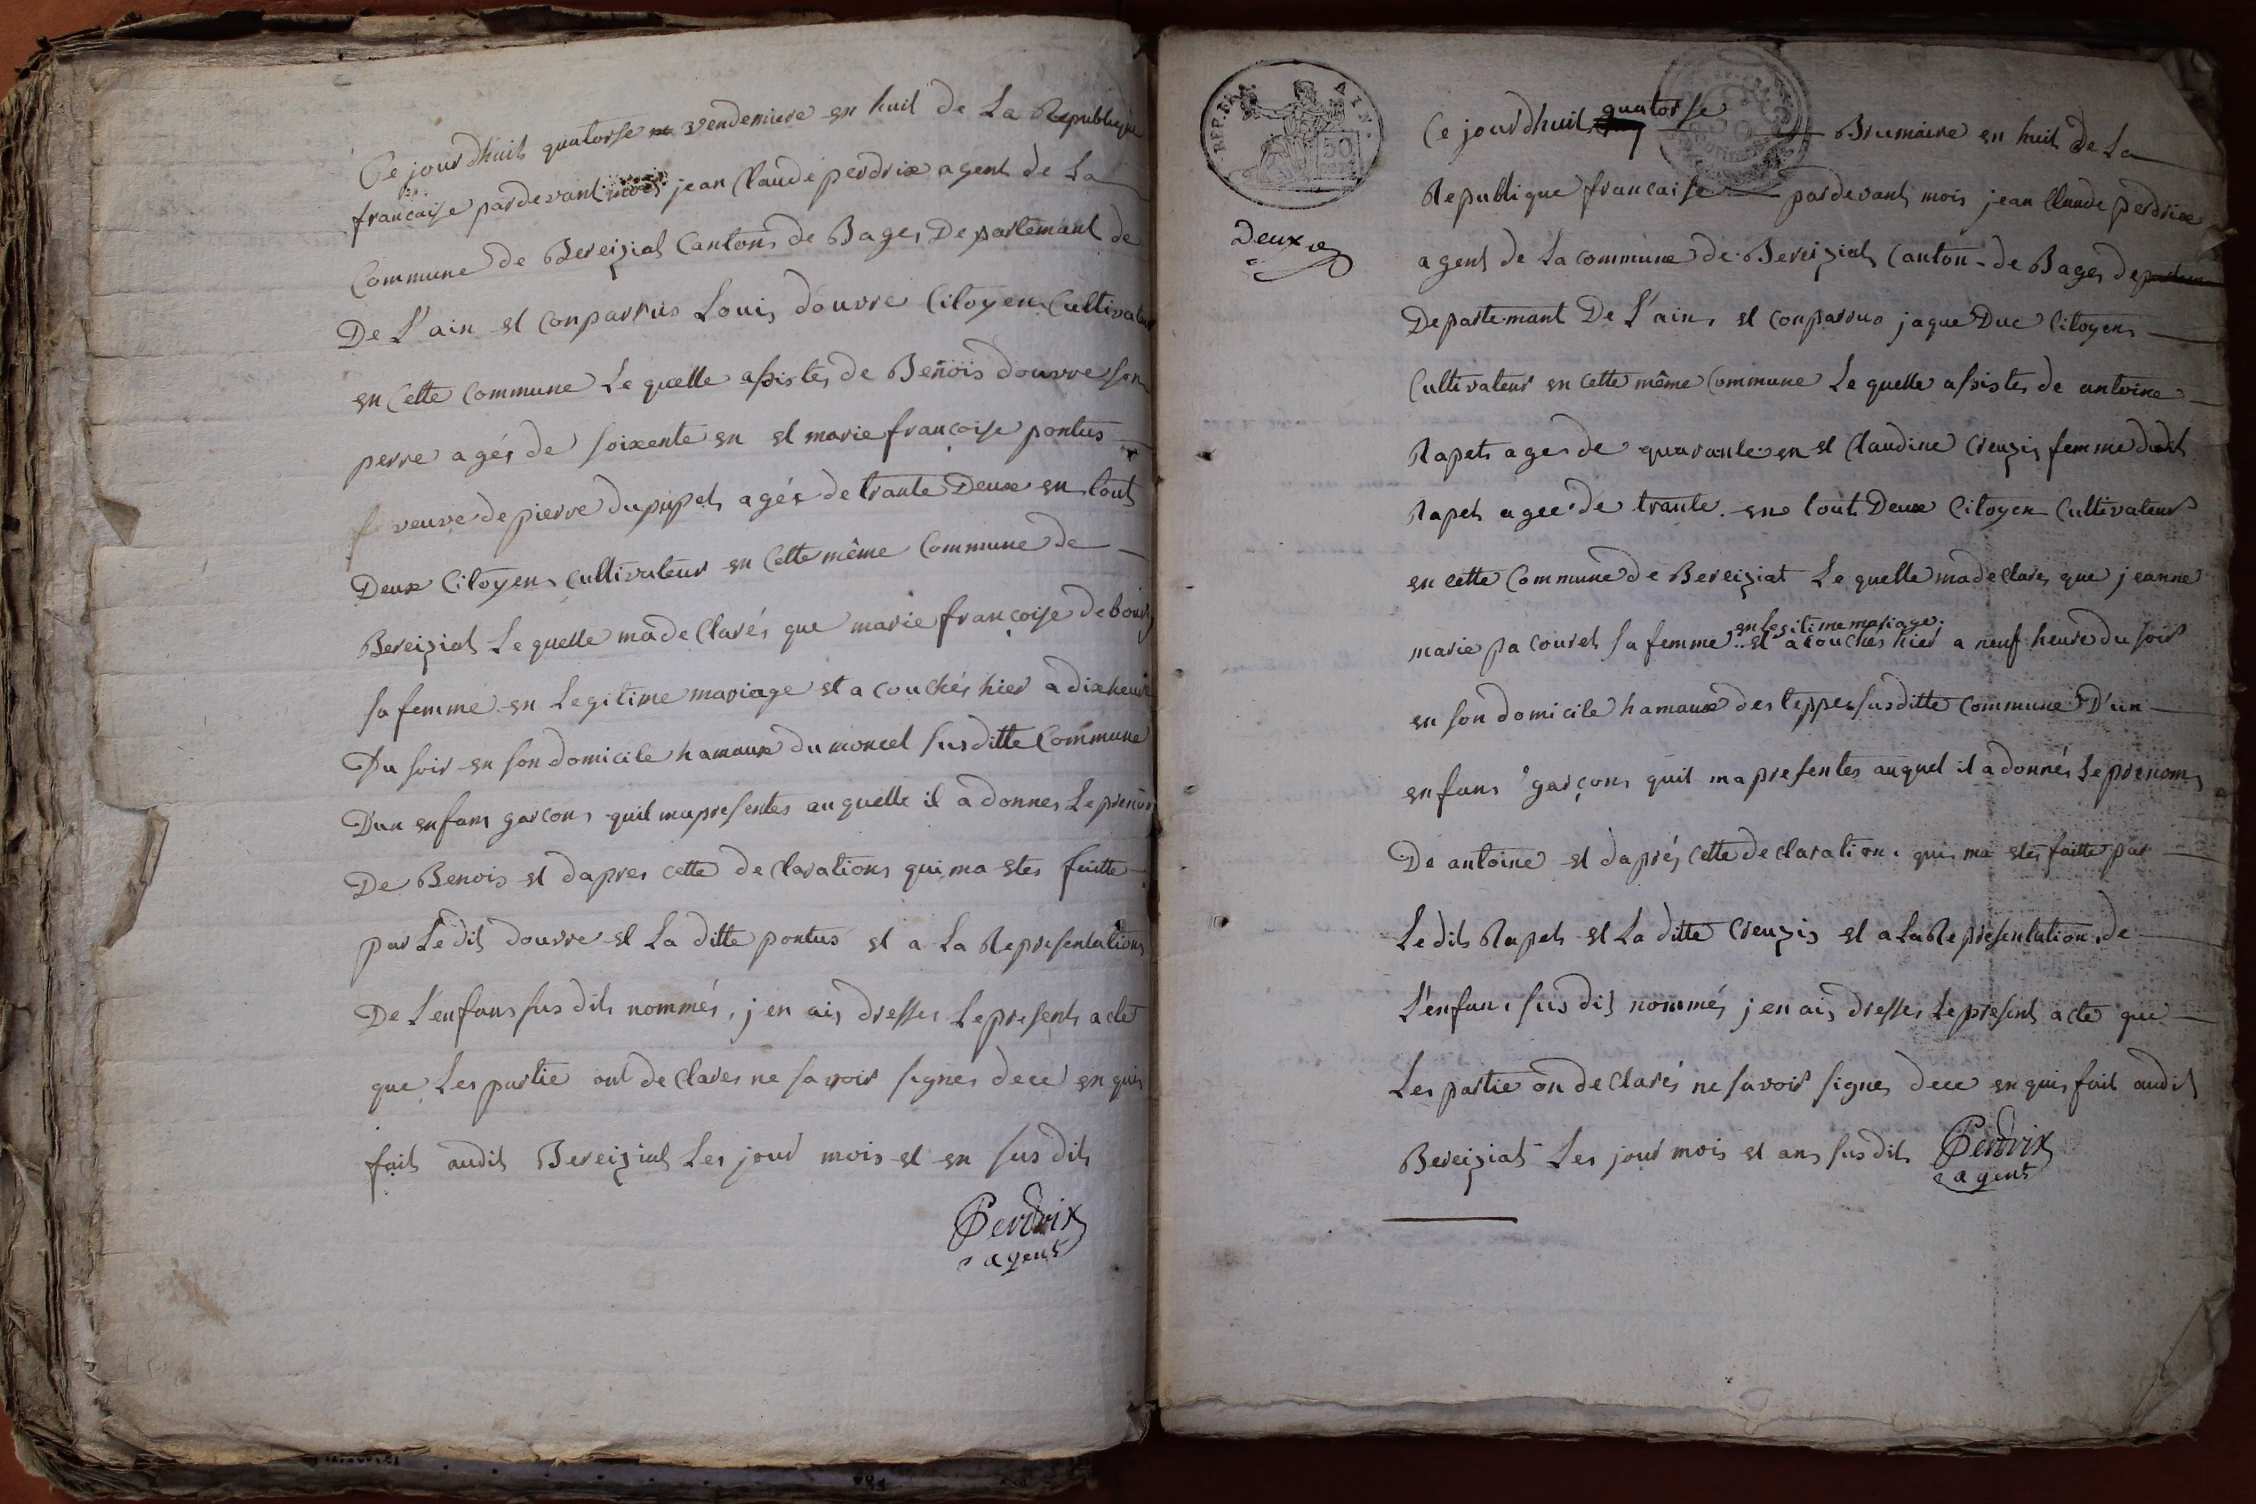 Ce jourdhuit quatorse vendemiere en huit de La Republique
francaise pardevant mois jean Claude perdrix agent de La
Commune de Bereiziat Canton de Bages Departemant de
De L'ain et conparrus Louis douvre Citoyen Cultivateur
en Cette Commune Le quelle assistes de Benois douvre son
perre agés de soixente en et marie francoise pontus
veuve de pierre dupupet agée de trante Deux en tout
Deux Citoyens cultivateur en Cette même Commune de
Bereiziat Le quelle ma de Clarés que marie françoise debourg
sa femme en Legitime mariage et a couchés hier a dix heure
Du soir en son domicile hamaux du moncel susditte Commune
D'un enfans garcons quil mapresentes auquelle il a donnes Le prenom
De Benois et dapres cette de Clarations qui ma etes faitte
par Le dit douvre et La ditte pontus et a La Representations
De L'enfans sus dits nommés, j en ais dresses Le presents acte
que Les partie ont de Clares ne savoir signes de ce en quis
fait audit Bereiziat Les jour mois et en sus dits
Perdrix
agent
REP. FRA
50
Deux e
Ce jourdhuit quatorse Brumaire en huit de La
Republique francaise pardevant mois jean Claude perdrix
agent de La commune de Bereiziat Canton de Bages departem
Departemant De L'ain et conparrus jaque Duc Citoyens
Cultivateur en Cette même Commune Le quelle assistes de antoine
Rapets ages de quarante en et Claudine Creuzis femme dudit
Rapet agee de trante en tout Deux Citoyen Cultivateur
en cette Commune de Bereiziat Le quelle ma de Clares que jeanne
marie pacouret sa femme en legitime mariage et acouches hier a neuf heure du soir
en son domicile hamaux des teppes susditte Commune D'un
enfans garçons quil ma presentes auquel il a donnés Le prenoms
De antoine et daprés cette de claration qui ma etes faitte par
Le dits Rapets et La ditte Creuzis et a La Representation de
L'enfans sus dit nommés j en ais dresses Le present acte que
Les partie on de Clarés ne savoir signes de ce en quis fait audit
Bereiziat Les jour mois et ans sus dits Perdrix
agent